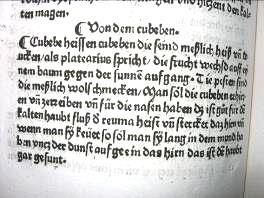 ten magen.
¶ Von dem cubeben.
¶ Cubebe heissen cubeben die seind meßlich heiß vñ tru
cken/als platearius spricht/die frucht wechßt auff ei
nem baum gegen der sunnẽ auffgang. Die besten seind
die meßlich wolschmecken. Man sol die cubeben
en vñ zerreiben vñ für die nasen haben dz ist gůt für dẽ
kalten haubt fluß d reuma heist vñ stercket daz hirn vñ
wenn man sy keüet so sol man sy lang in dem mund ha
ben vncz der dunst auf gee in das hirn das ist dẽ haubt
gar gesunt.